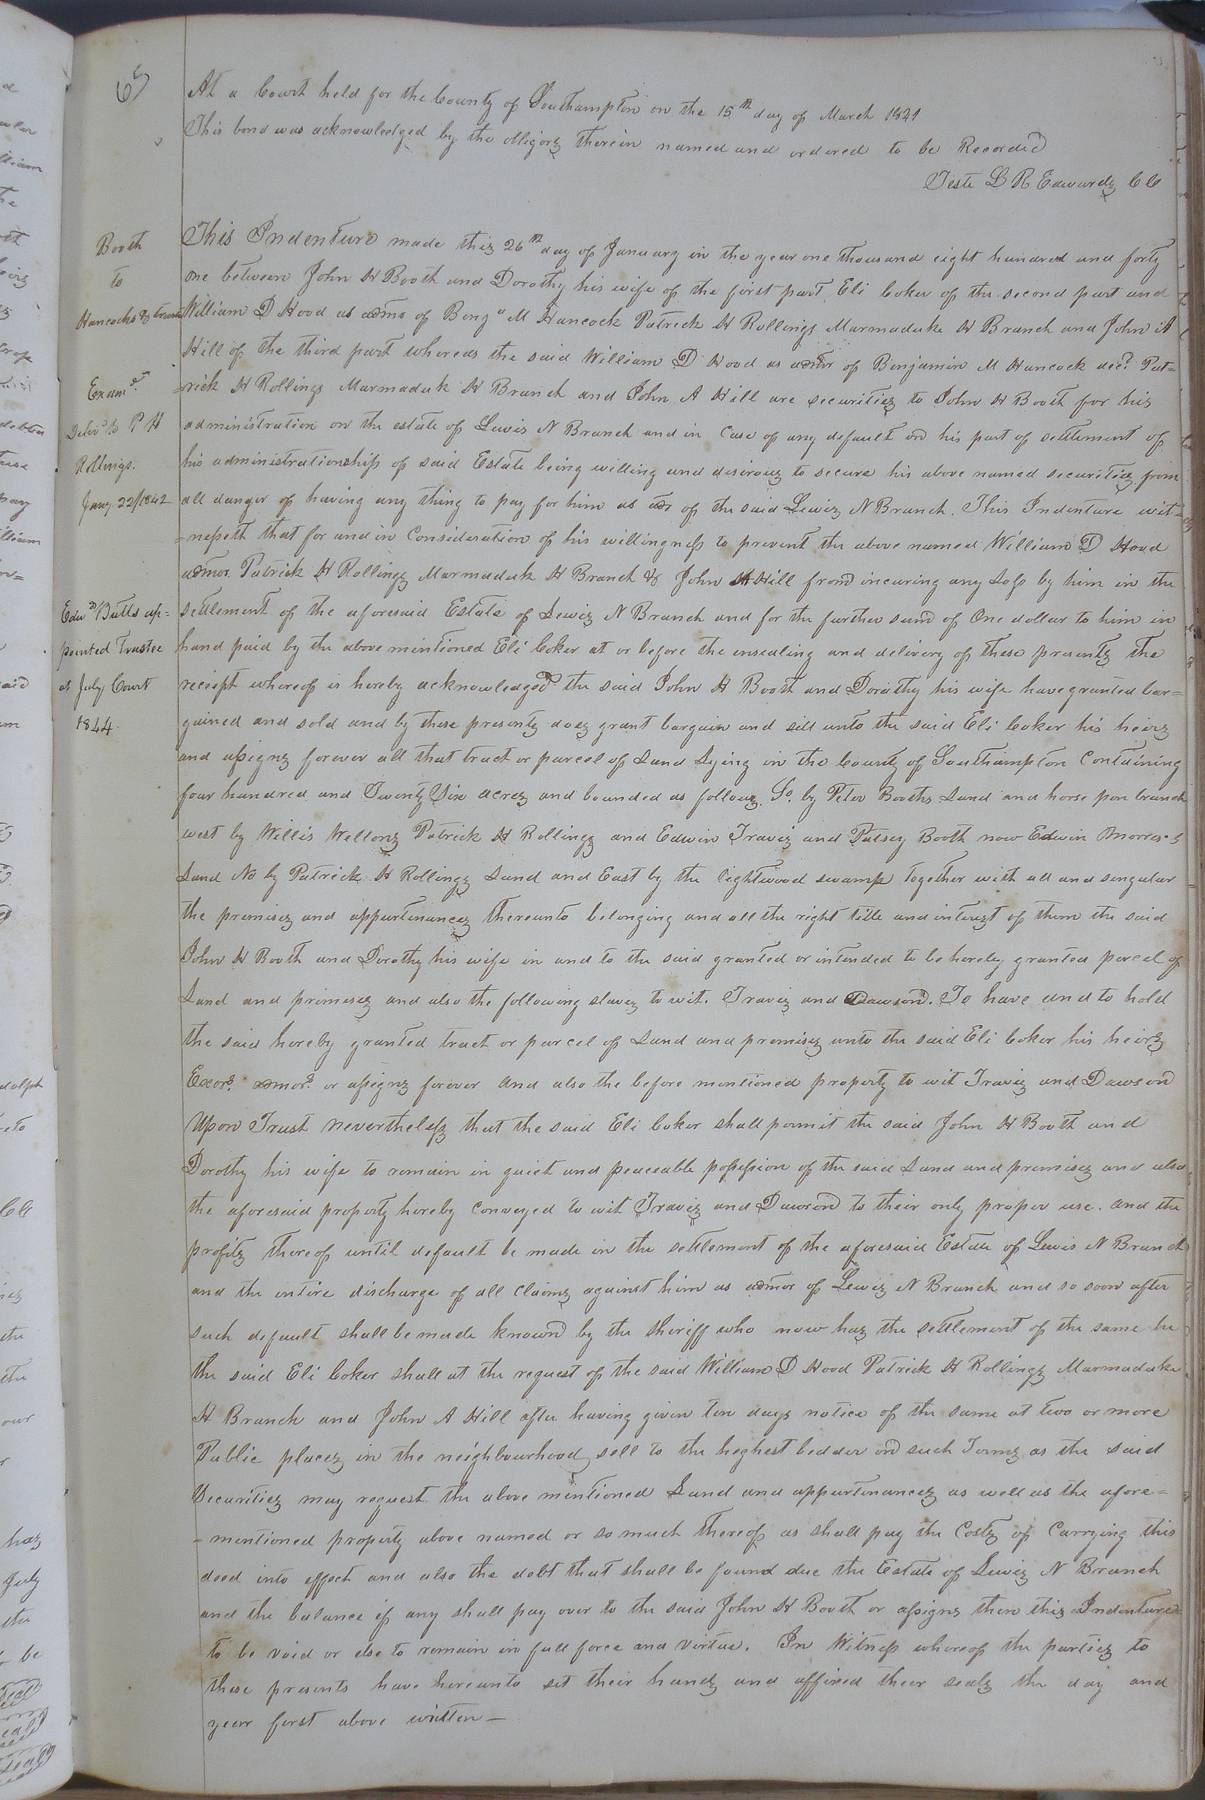 65
At a Court held for the County of Southampton on the 15th day of March 1841
This bond was acknowledged by the obligors therein named and ordered to be Recorded
Teste L R Edwards CC
Booth
to
Hancocks &
Examd.
Delivd to P H
Rollings.
Jany. 22/1842
Edwd Butts ap=
pointed Trustee
at July Court
1844.
This Indenture made this 26th day of January in the year one thousand eight hundred and forty
one between John H Booth and Dorothy his wife of the first part, Eli Coker of the second part and
William D Hood as admr of Benjn M Hancock Patrick H Rollings Marmaduke H Branch and John A
Hill of the third part whereas the said William D Hood as admr of Benjamin M Hancock decd. Pat=
=rick H Rollings Marmaduk H Branch and John A Hill are securities to John H Booth for his
administration on the estate of Lewis N Branch and in Case of any default on his part of settlement of
his administrationship of said Estate being willing and desirous to secure his above named securities from
all danger of having any thing to pay for him as adr of the said Lewis N Branch. This Indenture wit=
=nesseth that for and in Consideration of his willingness to prevent the above named William D Hood
admor. Patrick H Rollings Marmaduk H Branch & John A Hill from incuring any Loss by him in the
settlement of the aforesaid Estate of Lewis N Branch and for the further sum of One dollar to him in
hand paid by the above mentioned Eli Coker at or before the unsealing and delivery of these presents the
receipt whereof is hereby acknowledged the said John H Booth and Dorothy his wife have granted bar=
gained and sold and by these presents does grant bargain and sell unto the said Eli Coker his heirs
and assigns forever all that tract or parcel of Land Lying in the County of Southampton Containing
four hundred and Twenty Six acres and bounded as follows. So. by Peter Booths Land and horse pen branch
west by Willis Wellons Patrick H Rollings and Edwin Travis and Patsey Booth now Edwin
Land No by Patrick H Rollings Land and East by the lightwood swamp together with all and singular
the premises and appurtinances thereunto belonging and all the right title and interest of them the said
John H Booth and Dorothy his wife in and to the said granted or intended to be hereby granted parcel of
Land and primises and also the following slaves to wit. Travis and Dawson. To have and to hold
the said hereby granted tract or parcel of Land and promises unto the said Eli Coker his heirs
Exors. admors or assigns forever and also the before mentioned property to wit Travis and Dawson
Upon Trust nevertheless that the said Eli Coker shall permit the said John H Booth and
Dorothy his wife to remain in quiet and peaceable possession of the said Land and premises and also
the aforesaid property hereby conveyed to wit Travis and Dawson to their only proper use. and the
profits thereof until default be made in the settlement of the aforesaid Estate of Lewis N Branch
and the intire discharge of all claims against him as admor of Lewis N Branch and so soon after
such default shall be made known by the sheriff who now has the settlement of the same he
the said Eli Coker shall at the request of the said William D Hood Patrick H Rollings Marmaduke
H Branch and John A Hill after having given ten days notice of the same at two or more
Public places in the neighbourhood sell to the heghest bedder on such Terms as the said
Securities may request the above mentioned Land and appurtinances as well as the afore=
=mentioned property above named or so much thereof as shall pay the Costs of Carrying this
deed into effect and also the debt that shall be found due the Estate of Lewis N Branch
and the balance if any shall pay over to the said John H Booth or assigns then this Indenture
to be void or else to remain in full force and virtue. In Witness whereof the parties to
these presents have hereunto set their hands and affixed their seals the day and
year first above written—